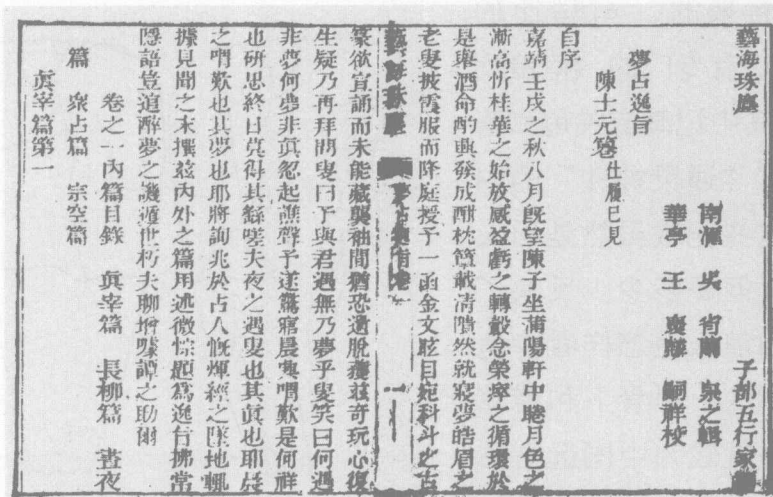 藝海珠塵 子部五行家類
南滙 吳省蘭 泉之輯
華亭 王 嗣祥校
夢占逸旨
陳士元篹 仕履已見
自序
嘉靖壬戌之秋八月旣望陳子坐蒲陽軒中聽月色之
漸高忻桂華之始放感盈虧之轉轂念榮瘁之循環於
是舉酒命酌興發成酣枕簟載清隤然就寢夢皓眉之
老叟披霞服而降庭授予一函金文眩目宛科斗之古
藝海珠塵 夢占逸旨 一
篆欲宣誦而未能藏襲袖間猶恐遺脫獲茲奇玩心復
生疑乃再拜問叟曰予與君遇無乃夢乎叟笑曰何遇
非夢何夢非眞忽起譙聲予遂驚寤晨興喟歎是何祥
也研思終日莫得其繇嗟夫夜之遇叟也其眞也耶晨
之喟歎也其夢也耶將詢兆於占人慨煇經之墜地輒
據見聞之末撰茲內外之篇用述微悰題爲逸旨拂常
隱語豈逭醉夢之譏遁世朽夫聊增噱譚之助爾
卷之一內篇目錄 眞宰篇 長柳篇 晝夜
篇 衆占篇 宗空篇
眞宰篇第一